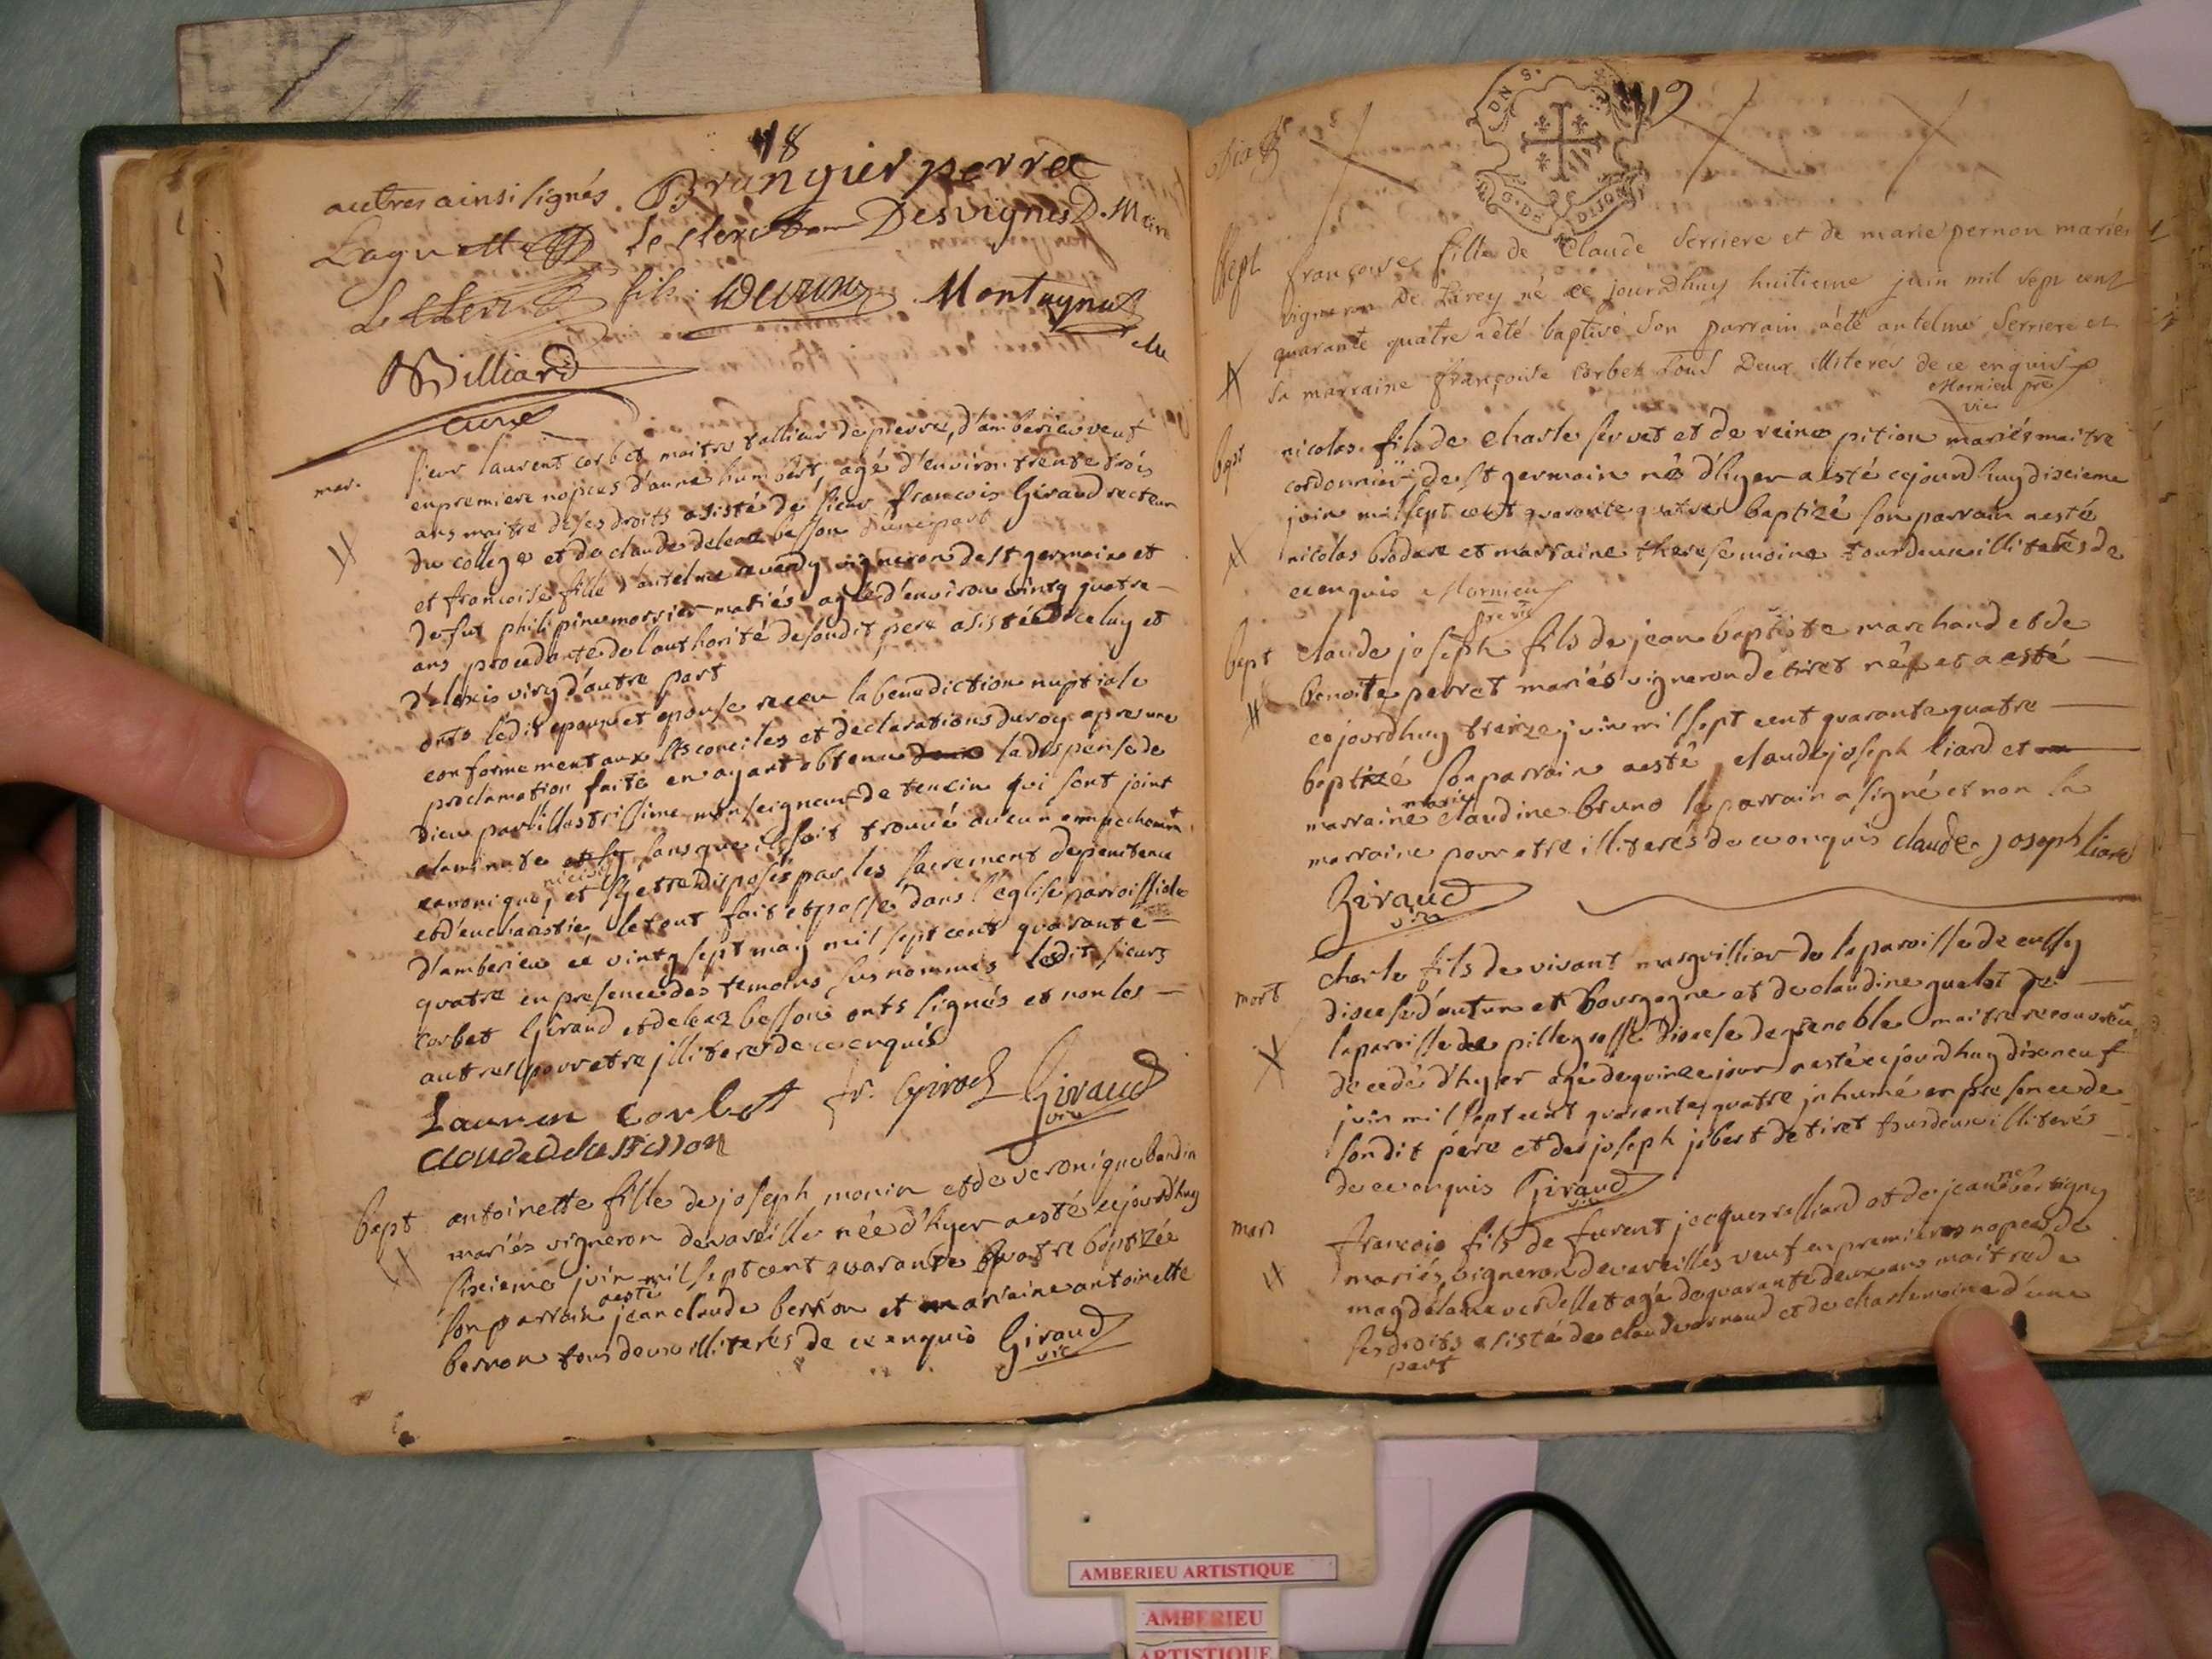 18
autres ainsi signés. Brangier perret
Laguette Leclerc Desvignes D. Meire
Leclerc fils. Montagnat
Billiard
curé
mar. sieur laurent corbet maitre tallieur de pierre, d'amberieu veuf
en premiere nopces d'anne humbert, agé d'environ trente trois
ans maitre de ses droits asisté de sieur francois Giraud recteur
du college et de claude deleaz besson d'une part
et francoise fille d'antelme reverdy vigneron de st germain et
de fut philipine morrier mariés agée d'environ vintq quatre
ans procedante de l'authorité de sondit pere asistée d'iceluy et
d'alexis viry d'autre part
onts ledit epoux et epouse receu la benediction nuptiale
conformement aux sts conciles et declarations du roy apres une
proclamation faite en ayant obtenu la dispense de
dieu par l'illustrissime monseigneur de tencin qui sont joint
a la minute sans que se soit trouvé aucun empechement
canonique, et s'y etre disposés par les sacrement de penitence
et d'eucharistie, le tout fait et passé dans l'eglise parroissiale
d'amberieu ce vintg sept may mil sept cent quarante
quatre en presence des temoins sus nommés lesdit sieurs
corbet Giraud et deleaz besson onts signés et non les
autres pour etre jlliteres de ce enquis
Lauren Corbet fr. Girod Giraud
vic
claude delas Besson
bapt antoinette fille de joseph monin et de veronique bandin
mariés vigneron de vareille née d'hyer a esté cejourdhuy
sixieme juin mil sept cent quarante quatre baptizée
son parrain a esté jean claude berson et marraine antoinette
berson tous deux illiterés de ce enquis Giraud
vic
19
G. DE DIJON
bapt françoise fille de Claude Serriere et de marie pernon mariés
vigneron De Tirey né ce jourdhuy huitieme juin mil sept cent
quarante quatre a été baptisé Son parrain a été antelme Serriere et
Sa marraine françoise Corbet Tous Deux illiterés de ce enquis
Mornieu pre
vic
bapt nicolas fils de charle servet et de reine pition mariés maitre
cordonnier de st germain né d'hyer a esté cejourdhuy dixieme
juin mil sept cent quarante quatre baptizé son parrain a esté
nicolas brodere et marraine therese moine tous deux illiterés de
ce enquis Mornieu
pre vic
bapt claude joseph fils de jean baptiste marchand et de
benoite perret mariés vigneron de tiret né et a esté
cejourdhuy treize juin mil sept cent quarante quatre
baptizé son parrain a esté claude joseph liard et
marraine marie claudine bruno le parrain a signé et non la
marraine pour etre illiterés de ce enquis claude joseph liard
Giraud
vic
mort charle fils de vivant masquillier de la paroisse de cussy
diocese d'autun et bourgogne et de claudine gualot de
la paroisse de diocese de grenoble maitre recouvreu
decedé d'hyer agé de quinze jour a esté cejourdhuy dixneuf
juin mil sept cent quarante quatre jnhumé en presence de
sondit pere et de joseph jibert de tiret tous deux illiterés
de ce enquis Giraud
vic
mari francois fils de furent jacques rolliard et de jeanne
mariés vigneron de vareilles veuf en premieres nopces de
magdelaine verdellet agé de quarante deux ans maitre de
ses droits asisté de claude arnaud et de charle moine d'une
part
AMBERIEU ARTISTIQUE
AMBERIEU
ARTISTIQUE